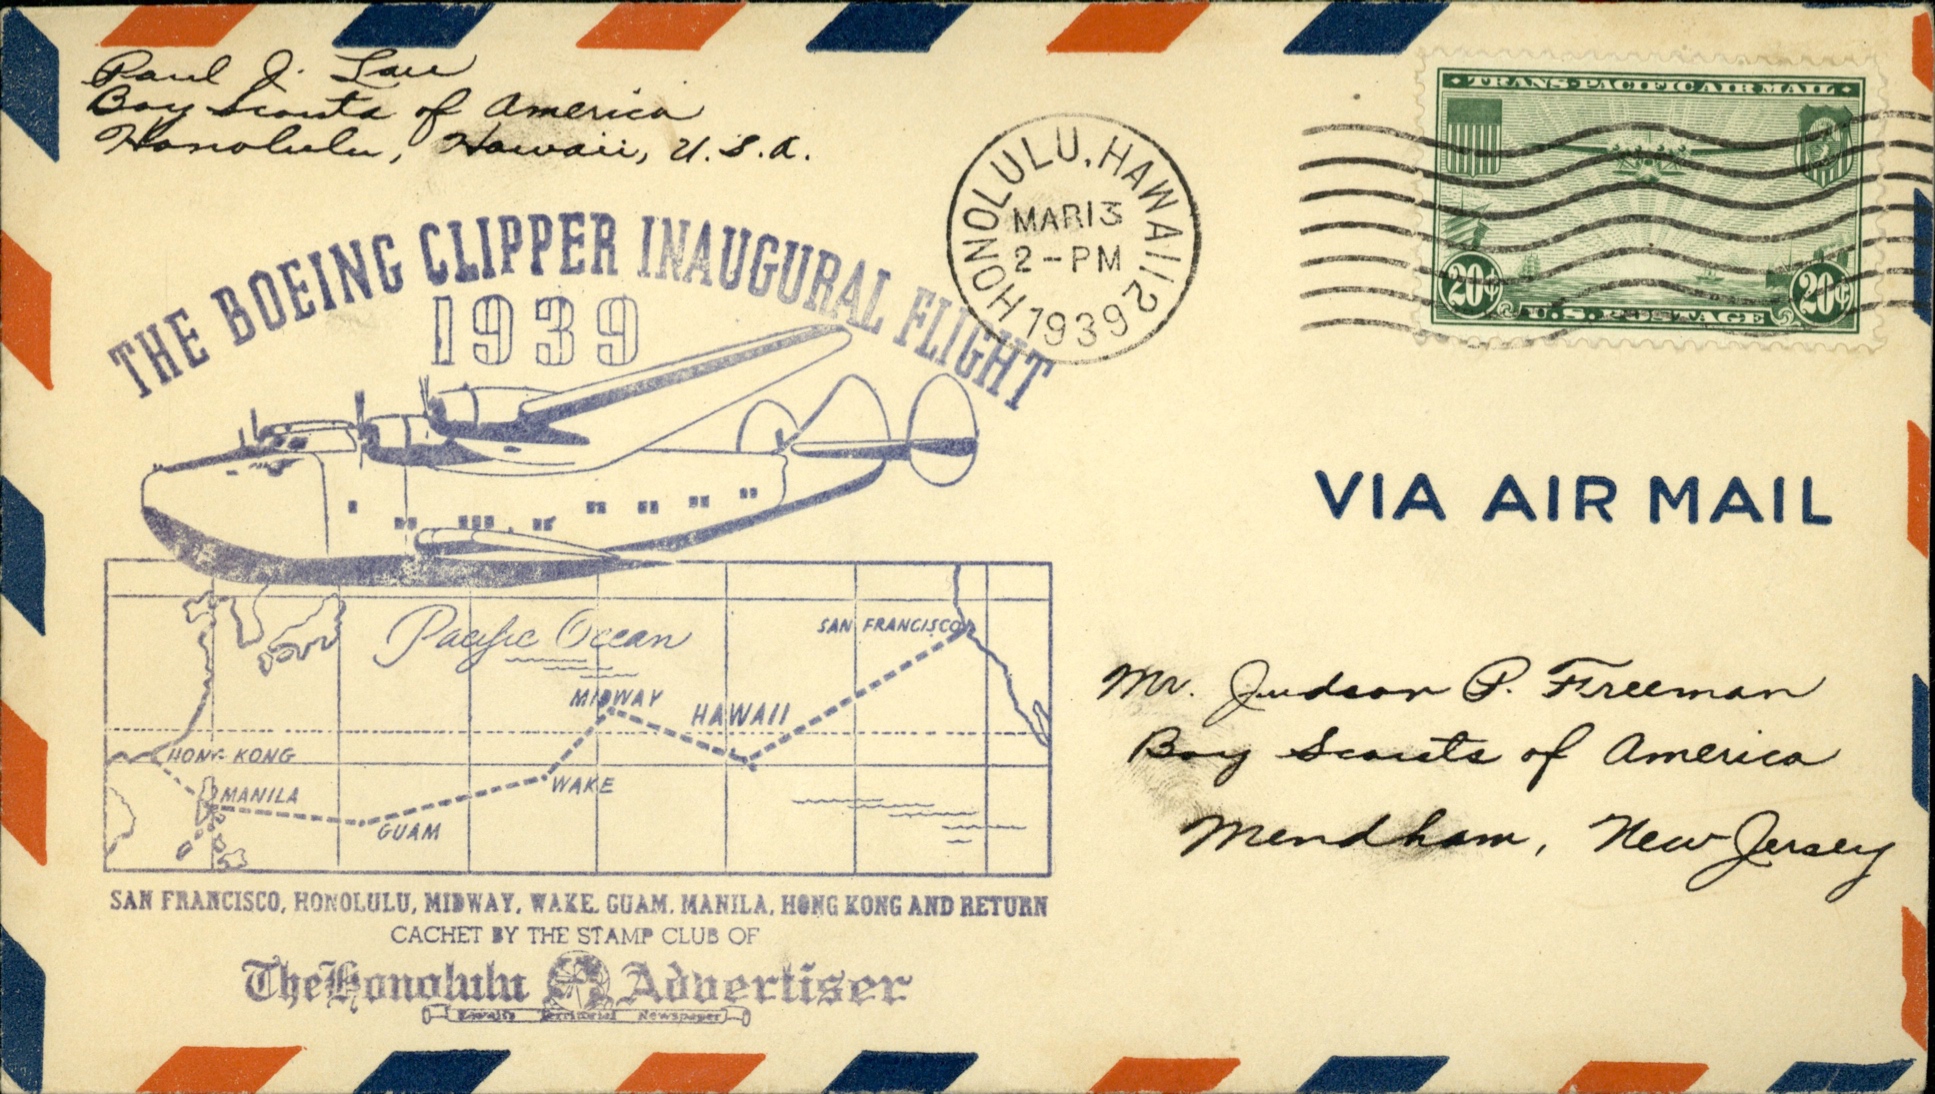 Paul J. Lau
Boy Scouts of America
Honolulu, Hawaii, U.S.A.
THE BOEING CLIPPER INAUGURAL FLIGHT
1939
HONOLULU, HAWAII 2
MAR 13
2-PM
1939
TRANS-PACIFIC AIR MAIL
20¢ 20¢
U.S. POSTAGE
VIA AIR MAIL
Pacific Ocean
SAN FRANCISCO
MIDWAY
HAWAII
HONG KONG
WAKE
MANILA
GUAM
Mr. Judson P. Freeman
Boy Scouts of America
Mendham, New Jersey
SAN FRANCISCO, HONOLULU, MIDWAY, WAKE, GUAM, MANILA, HONG KONG AND RETURN
CACHET BY THE STAMP CLUB OF
The Honolulu Advertiser
Hawaii's Territorial Newspaper